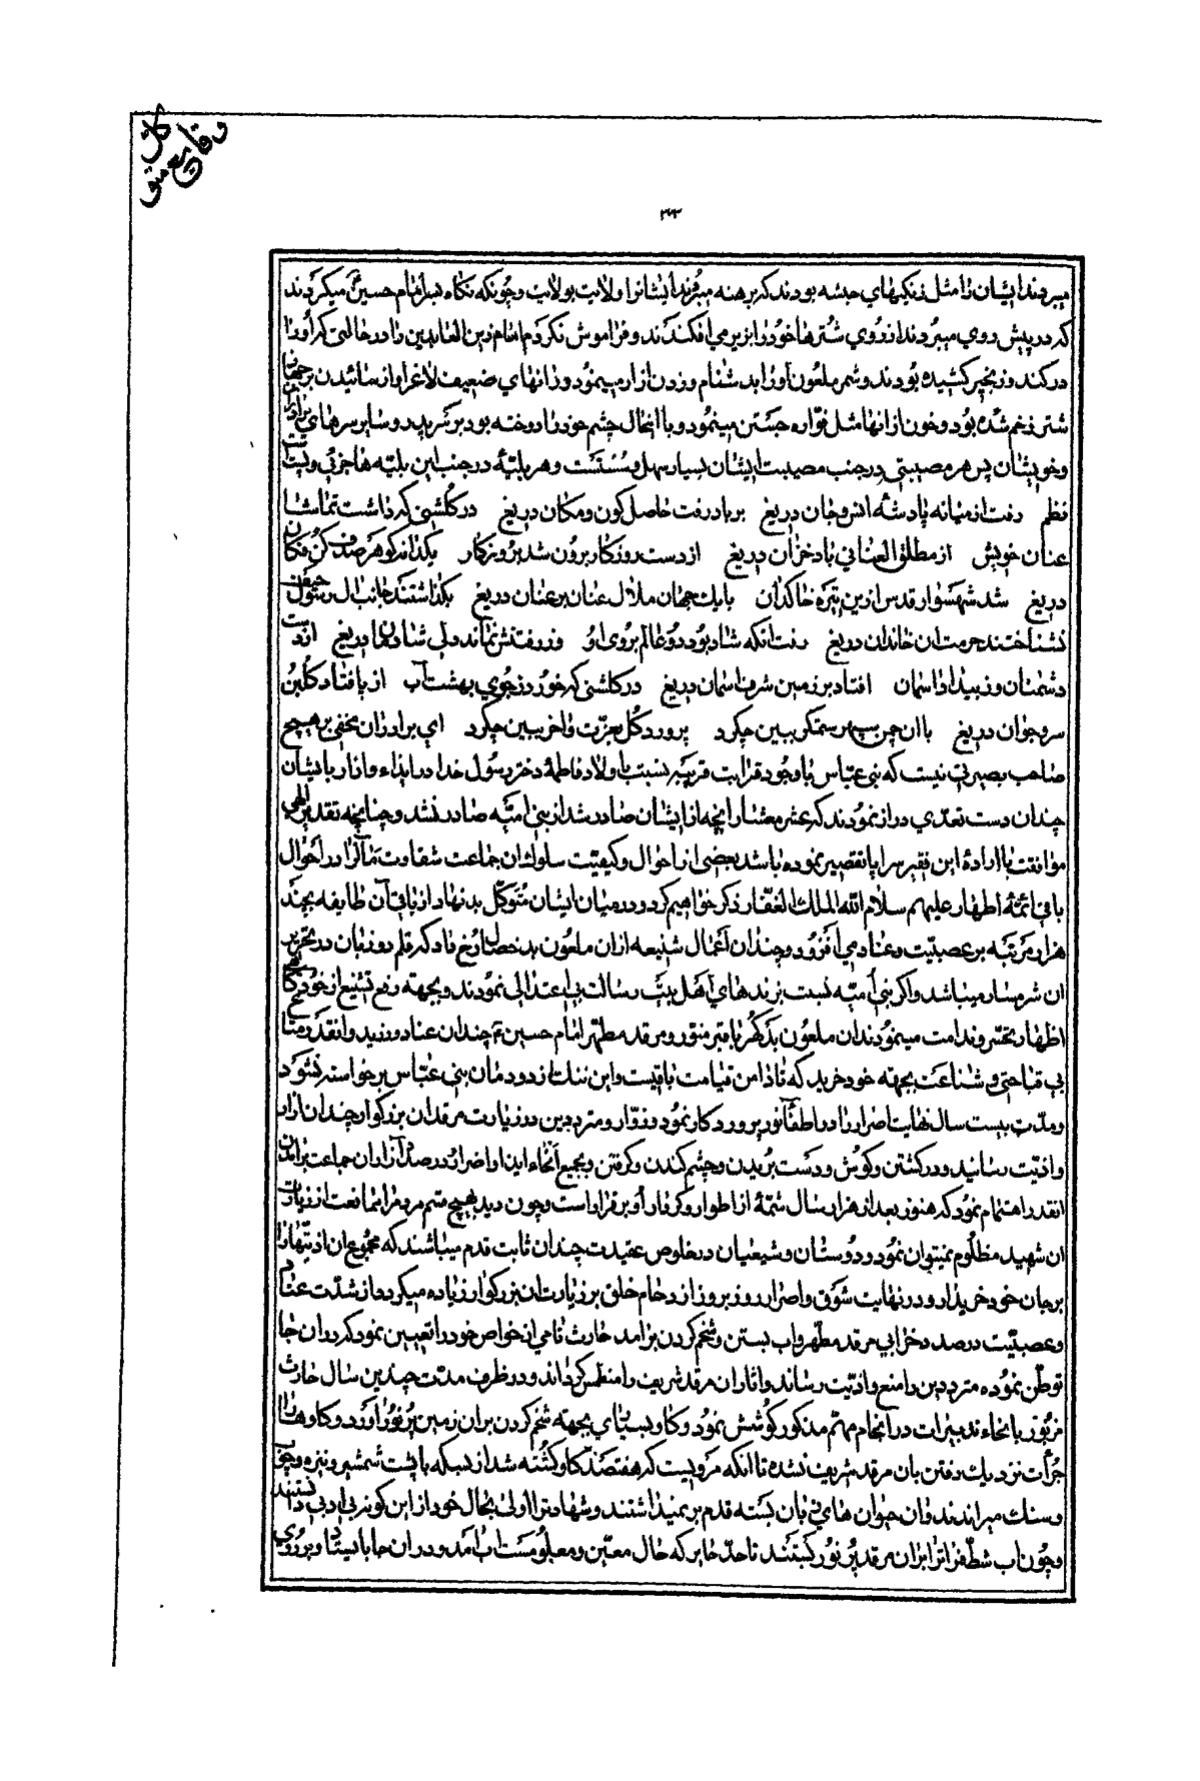 کل
وقایع
متوکل
۳۳
میبردند ایشان را مثل زنکیهای حبشه بودند که برهنه میبرند ایشانرا ولایت بولایت و چونکه نکاه بسر امام حسین میکردند
که در پیش روی میبردند از روی شترها خود را بزیر می افکندند و فراموش نکردم امام زین العابدین را در حالتی که او را
در کند و زنجیر کشیده بودند و شمر ملعون او را بد شنام و زدن ازار مینمود و رانهای ضعیف لاغر او از سائیدن بر جهاز
شتر زخم شده بود و خون از انها مثل فواره جستن مینمود و با اینحال چشم خود را دوخته بود بر سر پدر و سایر سرهای برادران
و خویشان پس هر مصیبتی در جنب مصیبت ایشان بسیار سهل و سست و هر بلیّهٔ در جنب این بلیّه ها جزئی و پست
نظم رفت از میانه پادشه انس و جان دریغ بر باد رفت حاصل کون و مکان دریغ در کلشنی که داشت تماشا
عنان خویش از مطلق العنانی باد خزان دریغ از دست روزکار برون شد بروزکار یکدانه کوهر صدف کن فکان
دریغ شد شهسوار قدس ازین تیره خاکدان با یک جهان ملال عنان بر عنان دریغ بکذاشتند جانب ال رسول حیف
نشناختند حرمت ان خاندان دریغ رفت انکه شاد بود دو عالم بروی او وز رفتنش نماند دلی شادمان دریغ از دست
دشمنان و ز بیداد اسمان افتاد بر زمین شرف اسمان دریغ در کلشنی که خورد ز جوی بهشت آب از پا فتاد کلبن
سرو جوان دریغ با ان چمن سپهر ستمکر ببین چکرد پرورد کل بعزت و اخر ببین چکرد ای برادران مخفی بر هیچ
صاحب بصیرت نیست که بنی عباس با وجود قرابت قریبه نسبت باولاد فاطمهٔ دختر رسول خدا در ایذاء و ازار بایشان
چندان دست تعدّی دراز نمودند که عشر معشار انچه از ایشان صادر شد از بنی امیّه صادر نشد و چنانچه تقدیر الهی
موافقت با ارادهٔ این فقیر سراپا تقصیر نموده باشد بعضی از احوال و کیفیّت سلوک ان جماعت شقاوت مآل را در احوال
باقی ائمّهٔ اطهار علیهم سلام الله الملک الغفار ذکر خواهیم کرد و در میان ایشان متوکل بد نهاد از باقی آن طایفه بچند
هزار مرتبه بر عصبیّت و عناد می افزود و چندان اعمال شنیعه از ان ملعون بد خصال رخ داد که قلم دو زبان در تحریر
ان شرمسار میباشد و اکر بنی امیّه نسبت بزندهای اهل بیت رسالت بی اعتدالی نمودند و بجهته رفع تشنیع از خود کاهی
اظهار تحسّر و ندامت مینمودند ان ملعون بد کهر با قبر منوّر و مرقد مطهّر امام حسین ع چندان عناد ورزید و انقدر متاع
بی قباحتی و شناعت بجهته خود خرید که تا دامن قیامت باقیست و این ننک از دودمان بنی عباس برخواسته نشود
و مدّت بیست سال نهایت اصرار را در اطفآء نور پروردکار نمود و زوّار و متردّدین در زیارت مرقد ان بزرکوار چندان ازار
و اذیّت رسانید و در کشتن و کوش و دست بریدن و چشم کندن و کرفتن و بجمیع انحاء ایذا و اضرار در صدد آزار ان جماعت برامد
انقدر اهتمام نمود که هنوز بعد از هزار سال شمّهٔ از اطوار و کردار او برقرار است و چون دید بهیچ قسم مردم را ممانعت از زیارت
ان شهید مظلوم نمیتوان نمود و دوستان و شیعیان در خلوص عقیدت چندان ثابت قدم میباشند که مجموع ان اذیّتها را
بر جان خود خریدار و در نهایت شوق و اصرار روز بروز ازدحام خلق بر زیارت ان بزرکوار زیاده میکردد از شدّت عناد
و عصبیّت در صدد خرابی مرقد مطهر و اب بستن و شخم کردن برامد حارث نامی از خواص خود را تعیین نمود که در ان جا
توطّن نموده متردّدین را منع و اذیّت رساند و اثار ان مرقد شریف را منطمس کرداند و در ظرف مدّت چندین سال حارث
مزبور بانحاء تدبیرات در انجام مهمّ مذکور کوشش نمود و کاو بسیاری بجهته شخم کردن بر ان زمین پر نور اورد و کاوها را
جرأت نزدیک رفتن بان مرقد شریف نشده تا انکه مرویست که هفتصد کاو کشته شد از بسکه با پشت شمشیر و نیزه و چوب
و سنک میراندند و ان حیوان های زبان بسته قدم بر نمیداشتند و شهادت را اولی بحال خود از این کونه بی ادبی دانستند
و چون اب شطّ فرات را بر ان مرقد پر نور کبتند تا حدّ حایر که حال معیّن و معلومست اب امد و در ان جا باستاد و بر روی